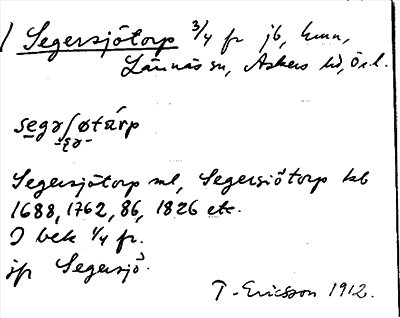 / Segersjötorp 3/4 fr jb,
Lännäs sn, Askers hd, Ör.l.
segərʃøtárp
Segersjötorp ml, Segersiötorp kb
1688, 1762, 86, 1826 etc.
I bek 1/4 fr.
jfr Segersjö.
T. Ericsson 1912.